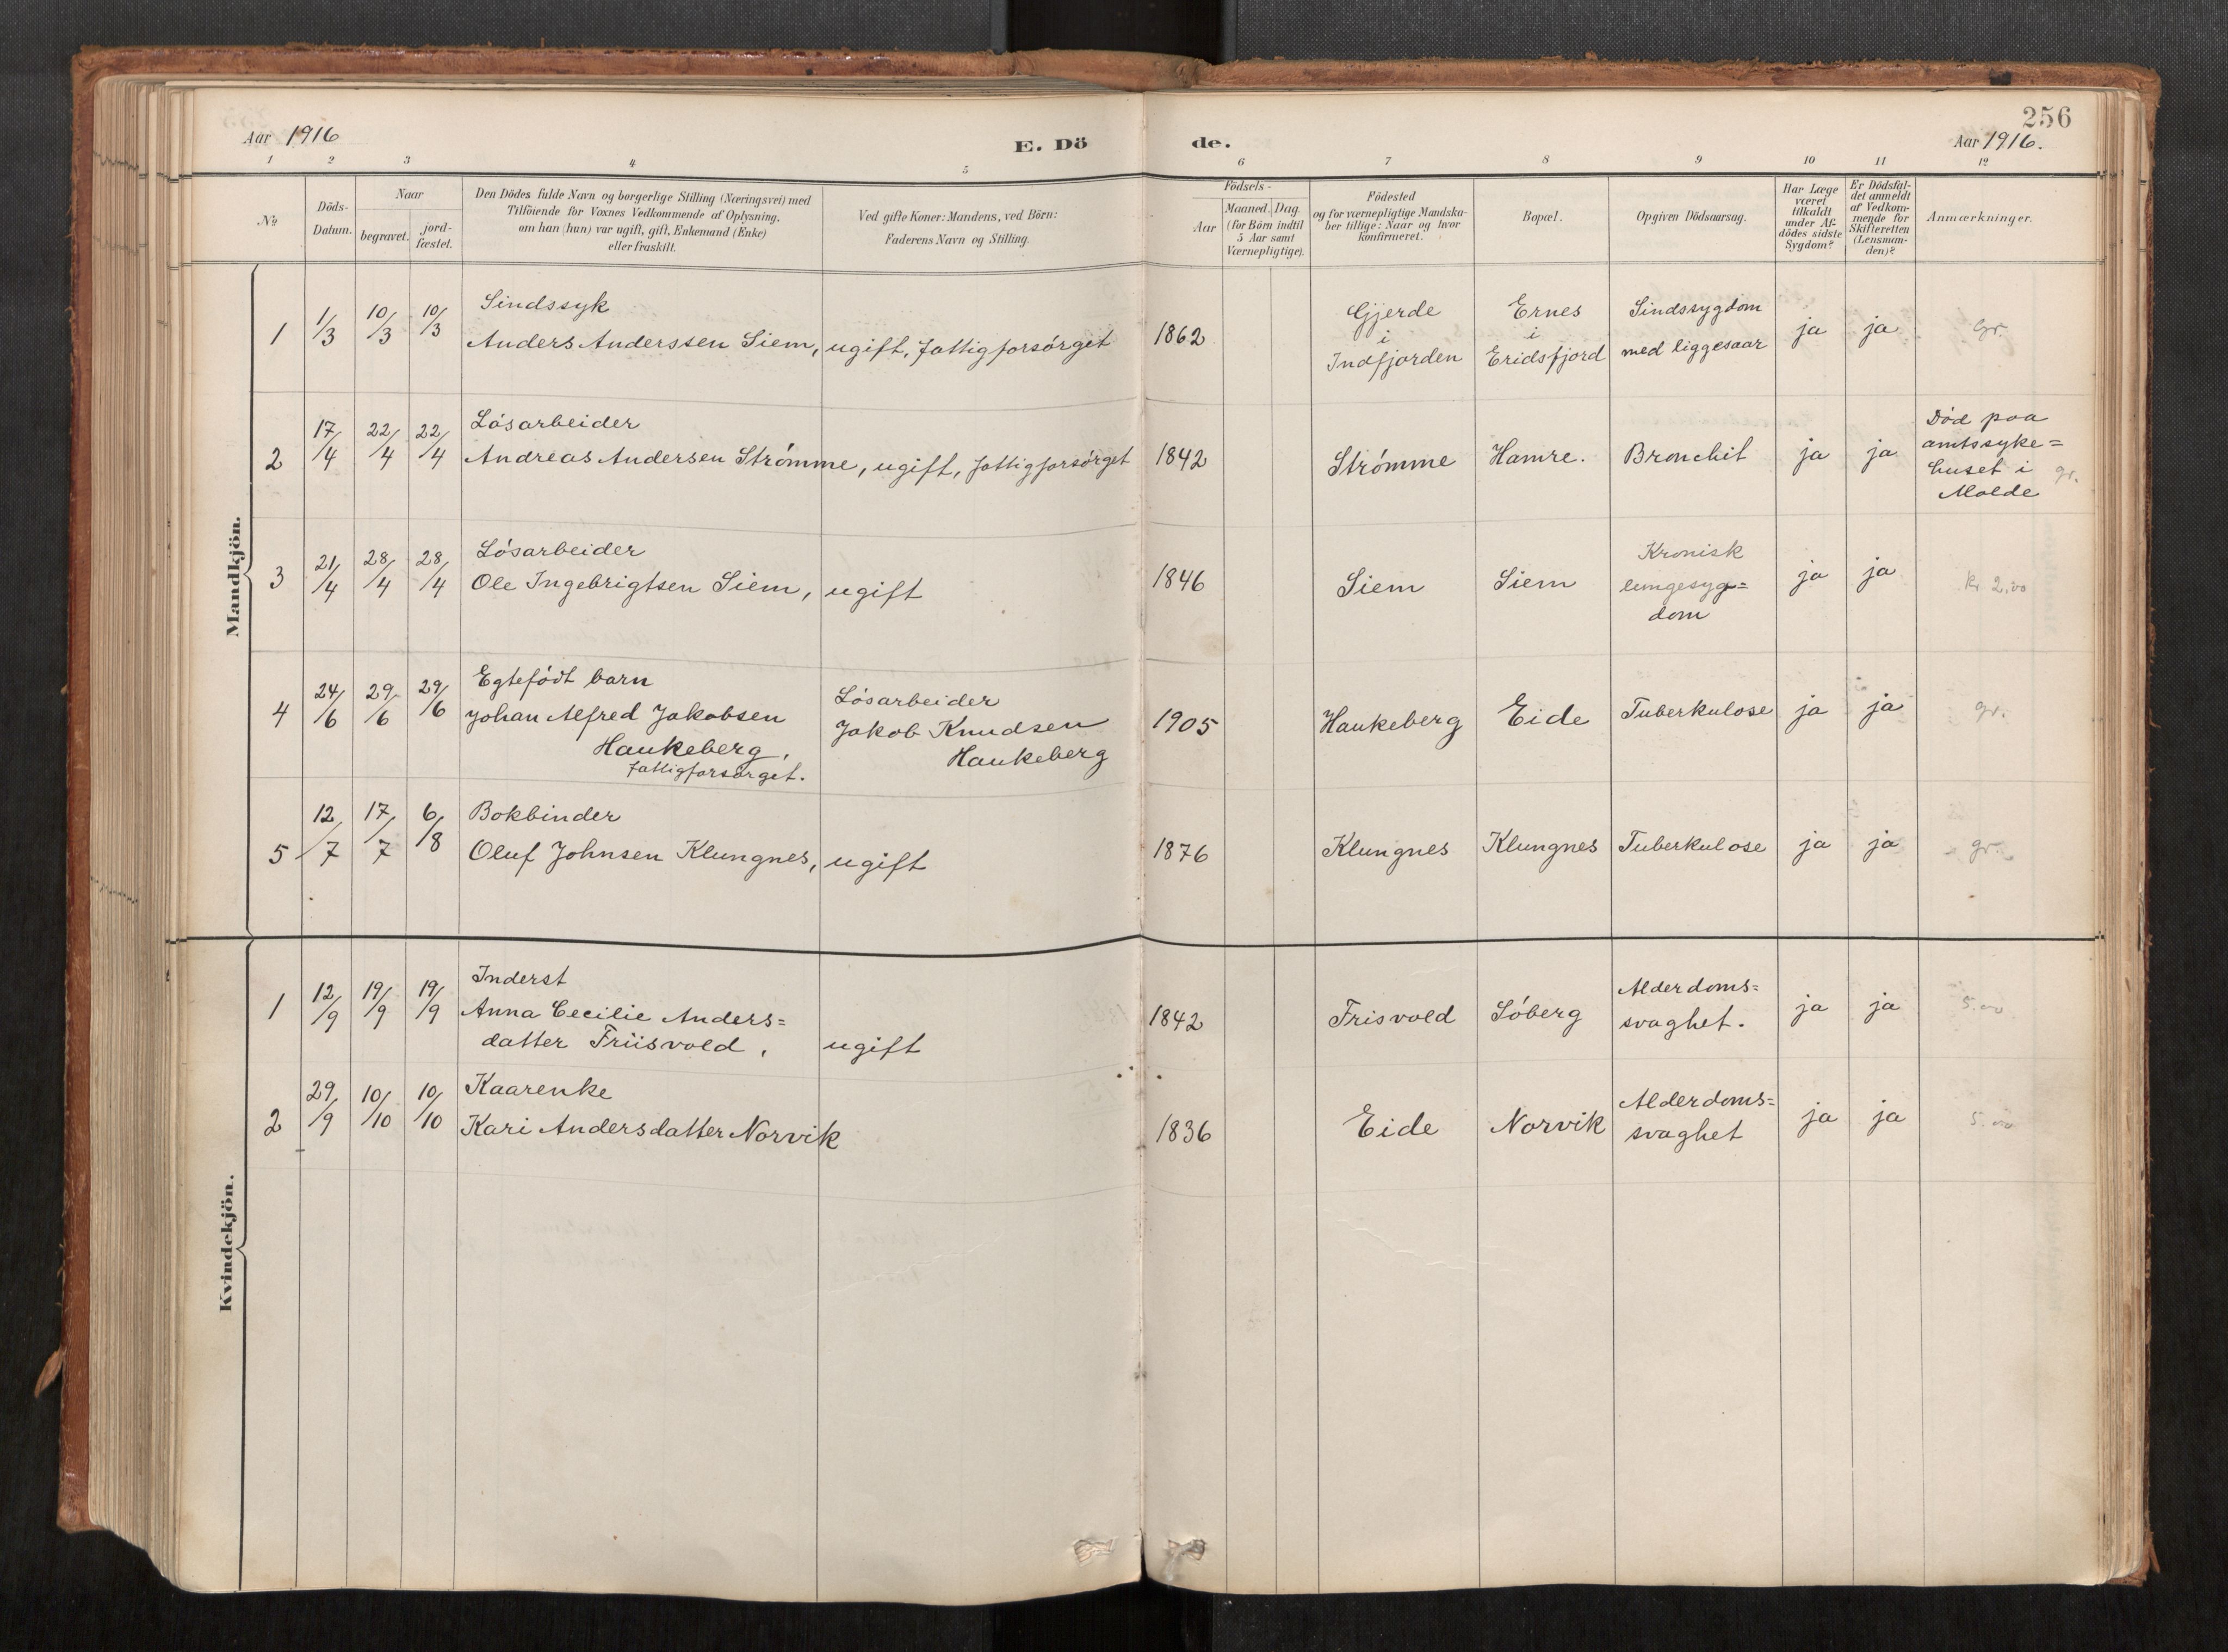 256
Aar 1916
E. Dö
de.
Aar 1916.
1 2 3 4 5 6 7 8 9 10 11 12
No
Döds-
Datum.
Naar
begravet.
jord-
fæstet.
Den Dödes fulde Navn og borgerlige Stilling (Næringsvei) med
Tilföiende for Voxnes Vedkommende af Oplysning,
om han (hun) var ugift, gift, Enkemand (Enke)
eller fraskilt.
Ved gifte Koner: Mandens, ved Börn:
Faderens Navn og Stilling.
Födsels-
Aar
Maaned. Dag.
(for Börn indtil
5 Aar samt
Værnepligtige).
Födested
og for værnepligtige Mandska-
ber tillige: Naar og hvor
konfirmeret.
Bopæl.
Opgiven Dödsaarsag.
Har Læge
været
tilkaldt
under Af-
dödes sidste
Sygdom?
Er Dödsfal-
det anmeldt
af Vedkom-
mende for
Skifteretten
(Lensman-
den)?
Anmærkninger.
Mandkjön.
1 1/3 10/3 10/3
Sindssyk
Anders Anderssen Siem, ugift, fattigforsørget
1862
Gjerde
i
Indfjorden
Ernes
i
Eridsfjord
Sindssygdom
med liggesaar
ja ja gr.
2 17/4 22/4 22/4
Løsarbeider
Andreas Andersen Strømme, ugift, fattigforsørget
1842 Strømme Hamre. Bronchit ja ja
Død paa
amtssyke=
huset i
Molde
gr.
3 21/4 28/4 28/4
Løsarbeider
Ole Ingebrigtsen Siem, ugift
1846 Siem Siem
Kronisk
lungesyg=
dom
ja ja kr 2,00
4 24/6 29/6 29/6
Egtefødt barn
Johan Alfred Jakobsen
Haukeberg,
fattigforsørget.
Løsarbeider
Jakob Knudsen
Haukeberg
1905 Haukeberg Eide Tuberkulose ja ja gr.
5 12/7 17/7 6/8
Bokbinder
Oluf Johnsen Klungnes, ugift
1876 Klungnes Klungnes Tuberkulose ja ja gr.
Kvindekjön.
1 12/9 19/9 19/9
Inderst
Anna Cecilie Anders=
datter Friisvold, ugift
1842 Frisvold Søberg
Alderdoms=
svaghet.
ja ja 5.00
2 29/9 10/10 10/10
Kaarenke
Kari Andersdatter Norvik
1836 Eide Norvik
Alderdoms=
svaghet
ja ja 5.00